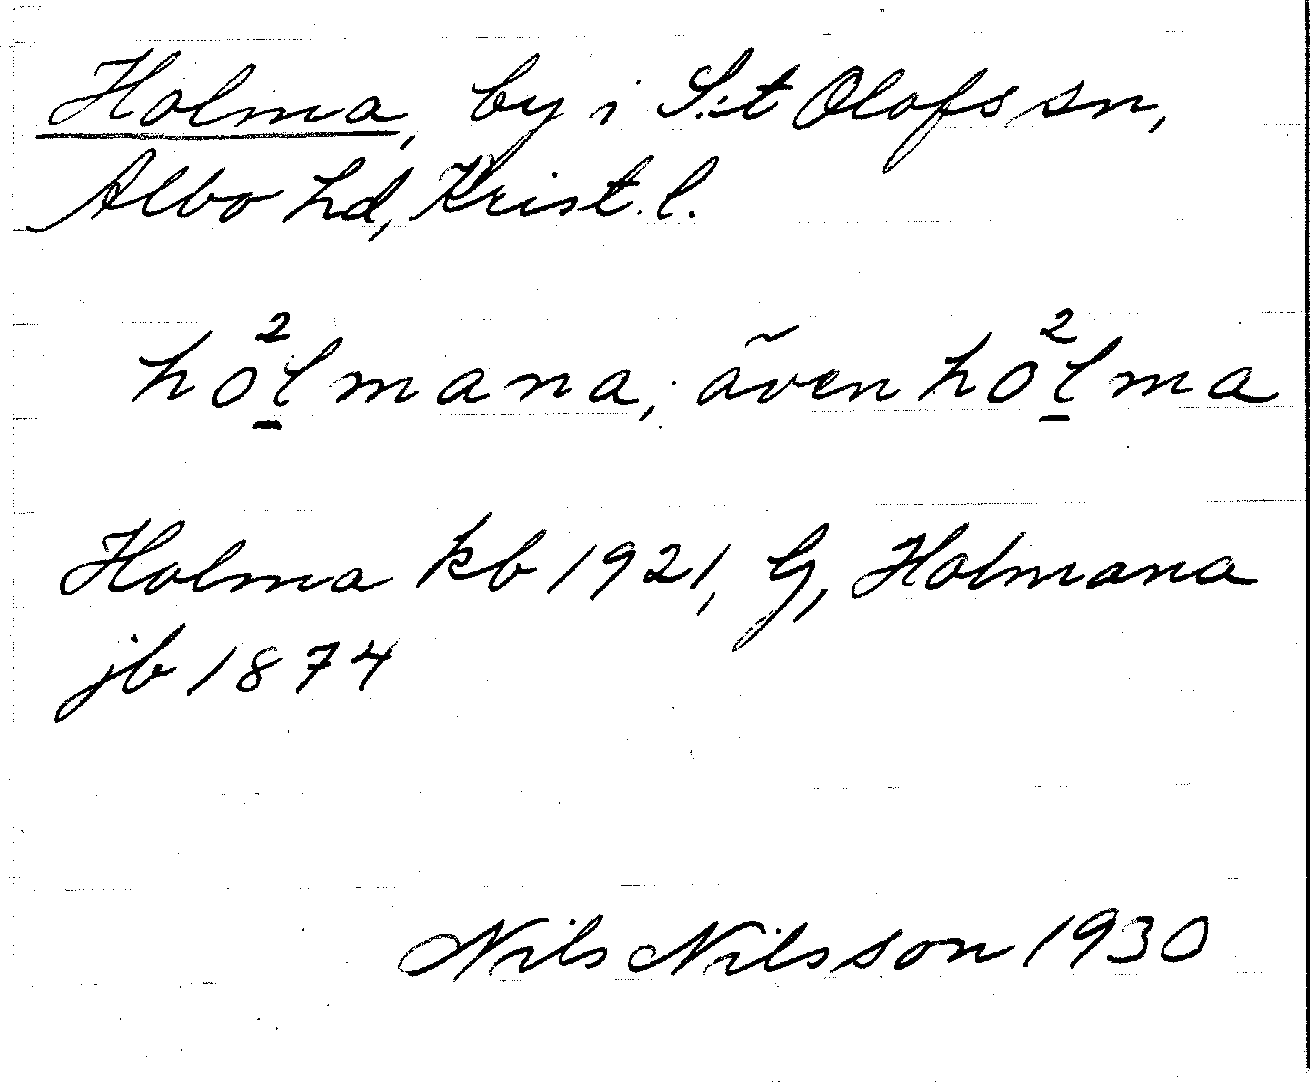 Holma, by i S:t Olofs sn,
Albo hd, Krist. l.
ho²l̠mana, även ho²l̠ma
Holma kb 1921, G, Holmana
jb 1874
Nils Nilsson 1930